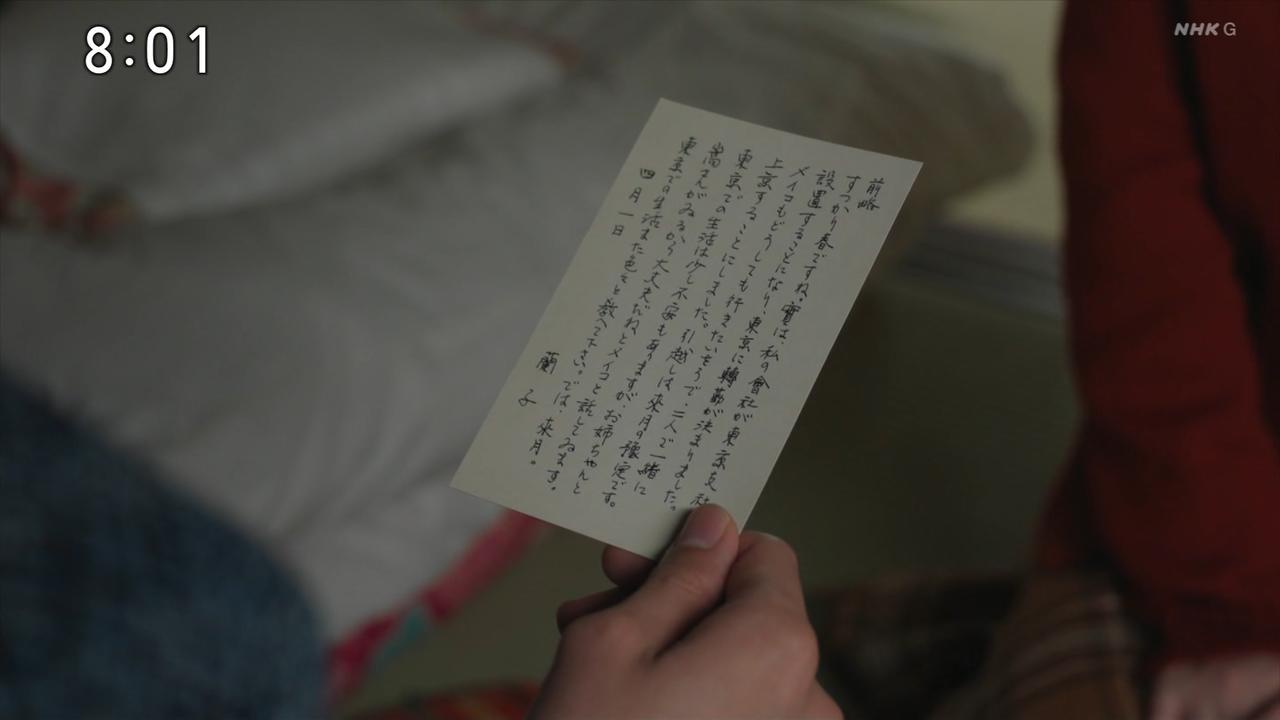 8:01
NHK G
前略
すつかり春ですね。實は、私の會社が東京支社
設置することになり、東京に轉勤が決まりました。
メイコもどうしても行きたいさうで、二人で一緒に
上京することにしました。引越しは来月の豫定です。
東京での生活は少し不安もありますが、お姉ちやんと
嵩さんがゐるから大丈夫だねとメイコと話してゐます。
東京での生活また色々と教へて下さい。では、来月。
四月一日
蘭子